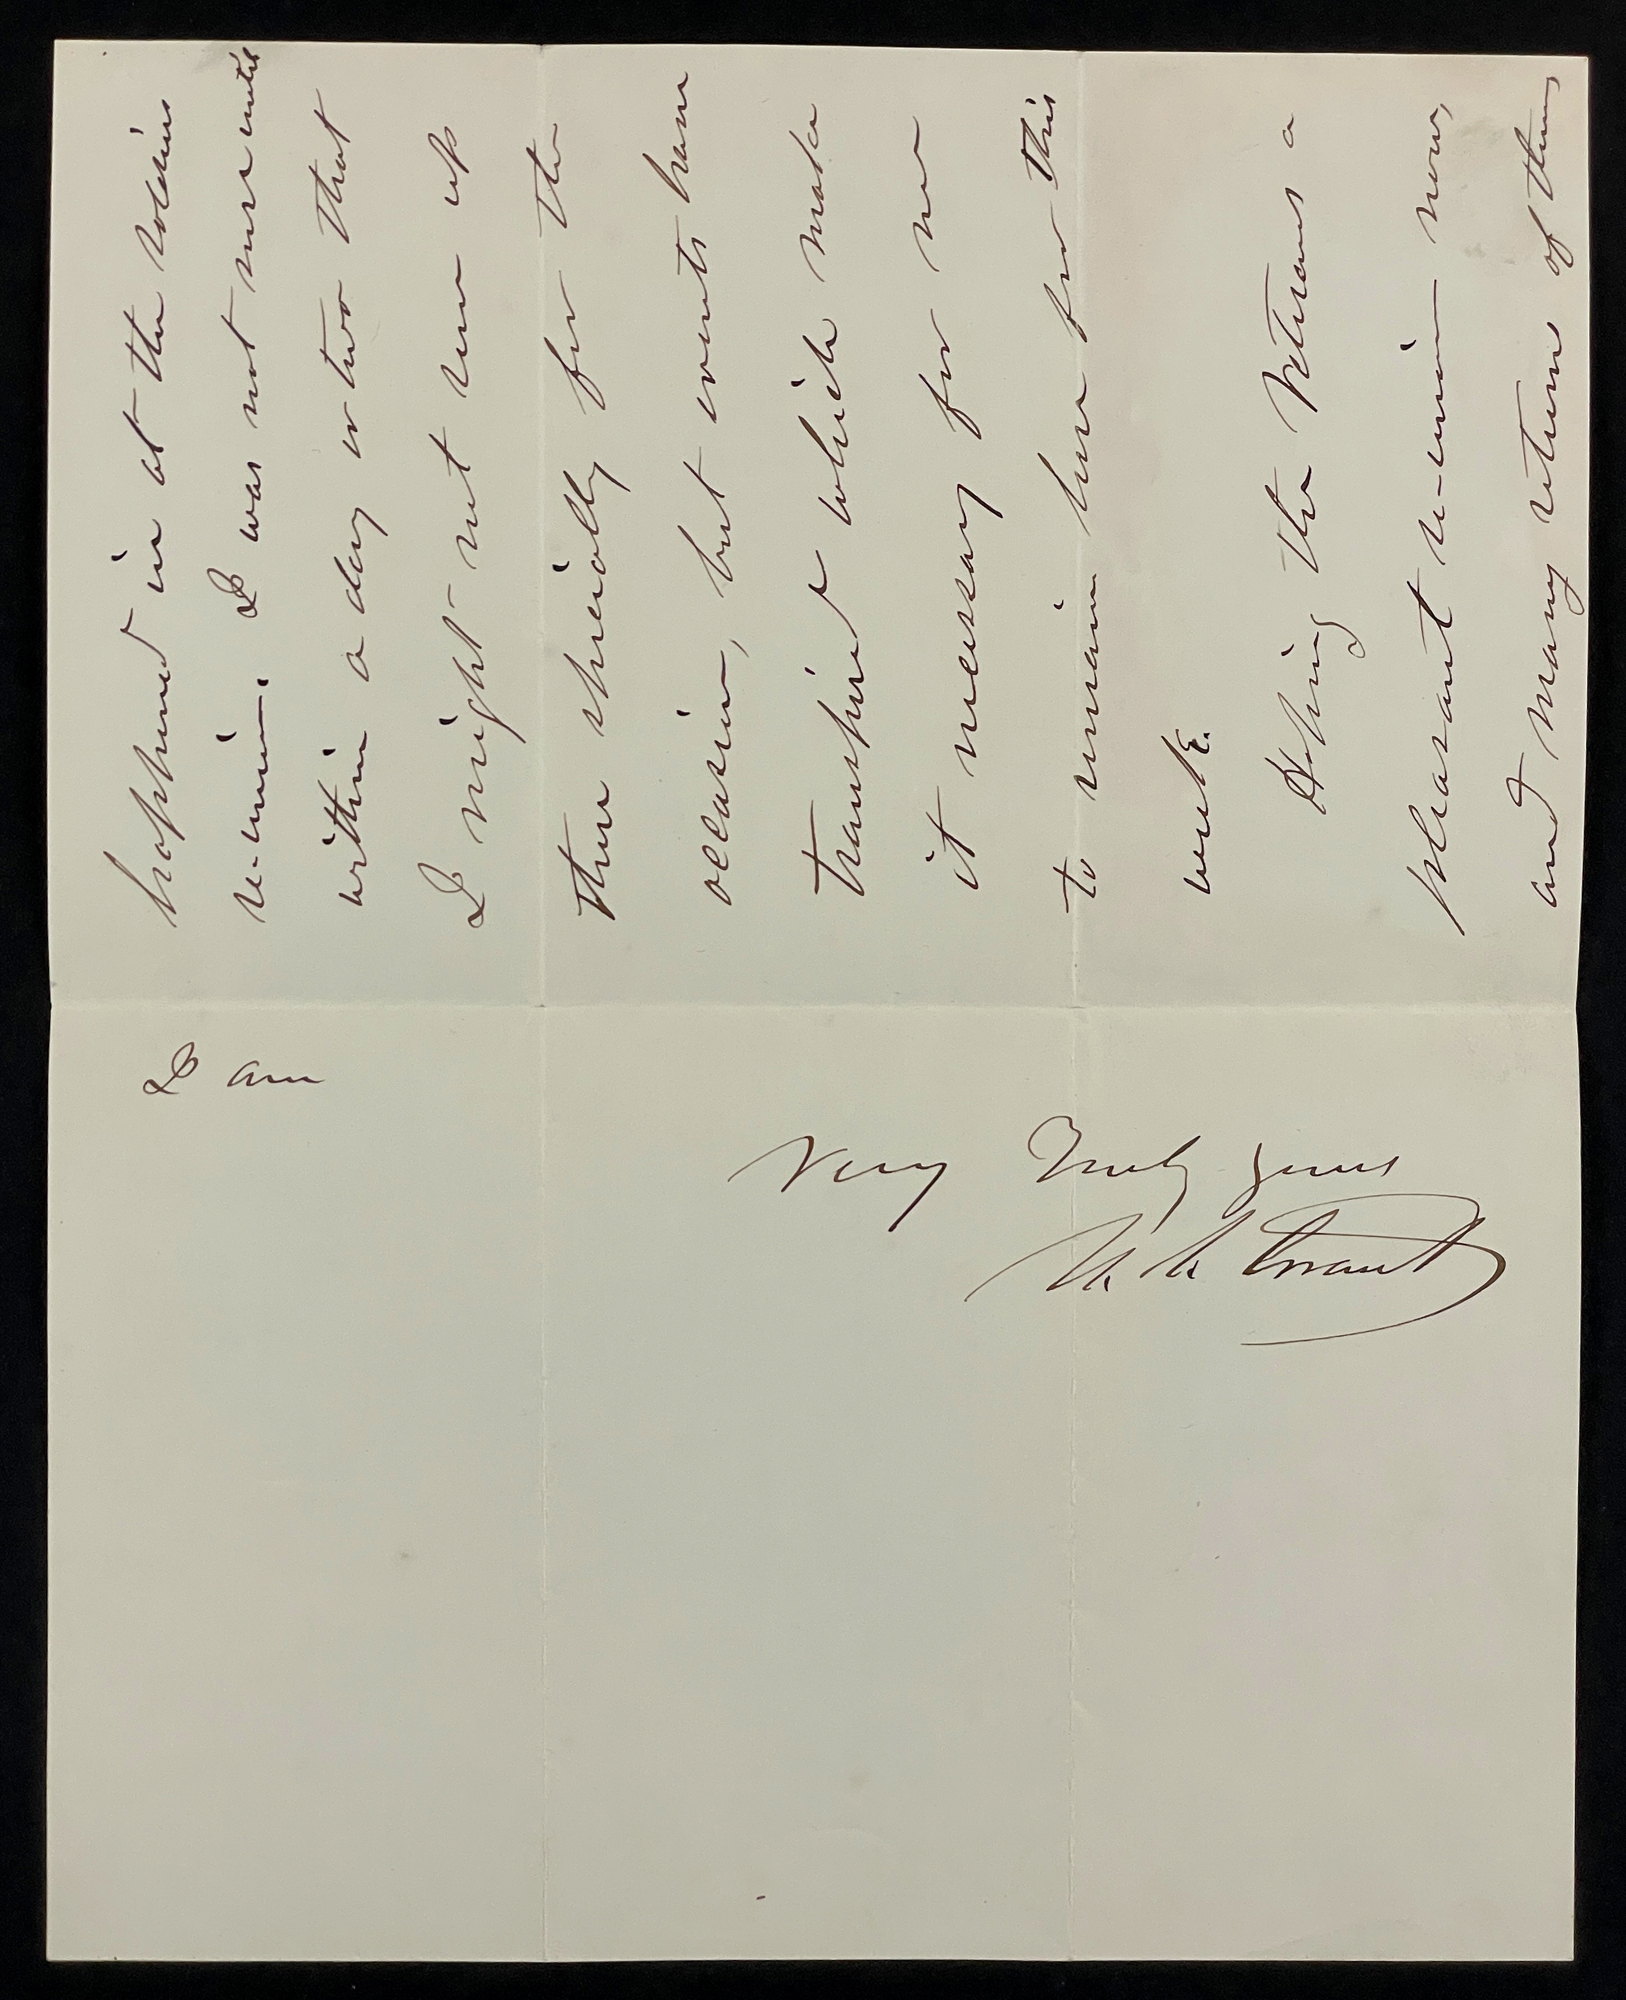 happened in at the soldiers
re-union. I was not sure until
within a day or two that
I might not run up
there specially for the
occasion, but events have
transpired which make
it necessary for me
to remain here for this
week.
Hoping the Veterans a
pleasant re-union now,
and many returns of them,
I am
Very Truly yours
U. S. Grant